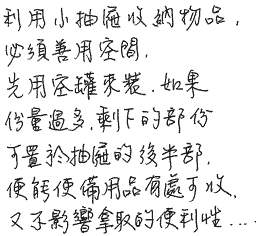 利用小抽屜收納物品,
必須善用空間.
先用空罐來裝.如果
份量過多.剩下的部份
可置於抽屜的後半部.
便能使備用品有處可收.
又不影響拿取的便利性....